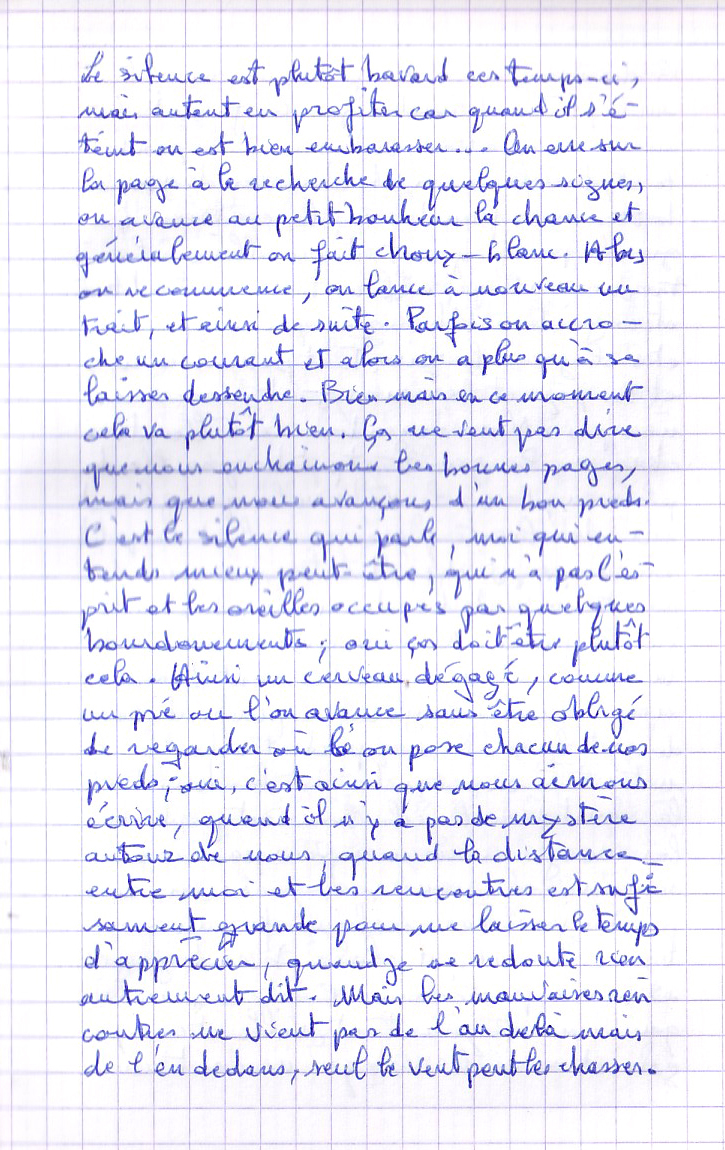 Le silence est plutôt bavard ces temps-ci,
mais autant en profiter car quand il s'é-
teint on est bien embarasser... On erre sur
la page à la recherche de quelques signes,
on avance au petit bonheur la chance et
généralement on fait choux-blanc. Alors
on recommence, on lance à nouveau un
trait, et ainsi de suite. Parfois on accro-
che un courant et alors on a plus qu'à se
laisser dessendre. Bien mais en ce moment
cela va plutôt bien. Ça ne veut pas dire
que nous enchaînons les bonnes pages,
mais que nous avançons d'un bon pieds.
C'est le silence qui parle, moi qui en-
tends mieux peut-être, qui n'a pas l'es-
prit et les oreilles occupés par quelques
bourdonnements; oui ça doit être plutôt
cela. Ainsi un cerveau dégagé, comme
un pré ou l'on avance sans être obligé
de regarder où on pose chacun de nos
pieds; oui, c'est ainsi que nous aimons
écrire, quand il n'y a pas de mystère
autour de nous, quand la distance
entre moi et les rencontres est suffi
sament grande pour me laisser le temps
d'apprécier, quand je ne redoute rien
autrement dit. Mais les mauvaises ren
contres ne vient pas de l'au delà mais
de l'en dedans, seul le vent peut les chasser.